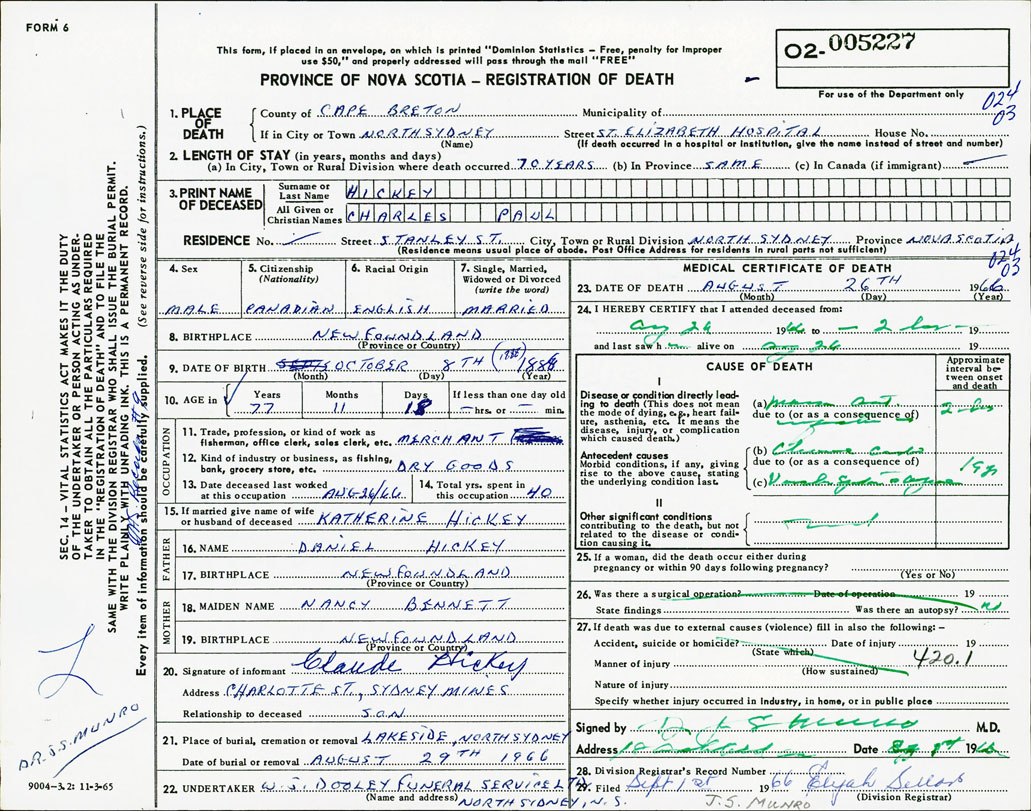 FORM 6
This form, if placed in an envelope, on which is printed "Dominion Statistics – Free, penalty for improper
use $50," and properly addressed will pass through the mail "FREE"
PROVINCE OF NOVA SCOTIA – REGISTRATION OF DEATH
02-005227
For use of the Department only
024
03
1. PLACE OF DEATH
County of CAPE BRETON Municipality of
If in City or Town NORTH SYDNEY Street ST. ELIZABETH HOSPITAL House No.
(Name) (If death occurred in a hospital or institution, give the name instead of street and number)
2. LENGTH OF STAY (in years, months and days)
(a) In City, Town or Rural Division where death occurred 70 YEARS (b) In Province SAME (c) In Canada (if immigrant)
3. PRINT NAME OF DECEASED
Surname or Last Name HICKEY
All Given or Christian Names CHARLES PAUL
RESIDENCE No. Street STANLEY ST. City, Town or Rural Division NORTH SYDNEY Province NOVA SCOTIA
(Residence means usual place of abode. Post Office Address for residents in rural parts not sufficient)
024
03
4. Sex
MALE
5. Citizenship (Nationality)
CANADIAN
6. Racial Origin
ENGLISH
7. Single, Married, Widowed or Divorced (write the word)
MARRIED
8. BIRTHPLACE NEWFOUNDLAND
(Province or Country)
9. DATE OF BIRTH OCTOBER 8TH 1888
(Month) (Day) (Year)
10. AGE in Years Months Days If less than one day old
77 11 18 hrs. or min.
OCCUPATION
11. Trade, profession, or kind of work as
fisherman, office clerk, sales clerk, etc. MERCHANT
12. Kind of industry or business, as fishing,
bank, grocery store, etc. DRY GOODS
13. Date deceased last worked at this occupation AUG 26/66
14. Total yrs. spent in this occupation 40
15. If married give name of wife
or husband of deceased KATHERINE HICKEY
FATHER
16. NAME DANIEL HICKEY
17. BIRTHPLACE NEWFOUNDLAND
(Province or Country)
MOTHER
18. MAIDEN NAME NANCY BENNETT
19. BIRTHPLACE NEWFOUNDLAND
(Province or Country)
20. Signature of informant Claude Hickey
Address CHARLOTTE ST., SYDNEY MINES
Relationship to deceased SON
21. Place of burial, cremation or removal LAKESIDE, NORTH SYDNEY
Date of burial or removal AUGUST 29TH 1966
22. UNDERTAKER W. S. DOOLEY FUNERAL SERVICE LTD
(Name and address) NORTH SIDNEY, N.S.
MEDICAL CERTIFICATE OF DEATH
23. DATE OF DEATH AUGUST 26TH 1966
(Month) (Day) (Year)
24. I HEREBY CERTIFY that I attended deceased from:
Aug 26 1966 to 2 hrs 19
and last saw h alive on Aug 26 19
CAUSE OF DEATH
Approximate interval between onset and death
I
Disease or condition directly leading to death (This does not mean
the mode of dying, e.g., heart failure, asthenia, etc. It means the
disease, injury, or complication
which caused death.)
(a)
due to (or as a consequence of)
2 hrs
Antecedent causes
Morbid conditions, if any, giving
rise to the above cause, stating
the underlying condition last.
(b)
due to (or as a consequence of)
(c)
II
Other significant conditions
contributing to the death, but not
related to the disease or condition causing it.
25. If a woman, did the death occur either during
pregnancy or within 90 days following pregnancy?
(Yes or No)
26. Was there a surgical operation? Date of operation 19
State findings Was there an autopsy? No
27. If death was due to external causes (violence) fill in also the following: –
Accident, suicide or homicide? Date of injury 19
(State which)
Manner of injury 420.1
(How sustained)
Nature of injury
Specify whether injury occurred in industry, in home, or in public place
Signed by J S Munro M.D.
Address Date 1966
28. Division Registrar's Record Number
29. Filed Sept 1st 1966 Elijah Sellars
(Division Registrar)
J.S. MUNRO
SEC. 14 – VITAL STATISTICS ACT MAKES IT THE DUTY
OF THE UNDERTAKER OR PERSON ACTING AS UNDER-
TAKER TO OBTAIN ALL THE PARTICULARS REQUIRED
IN THE "REGISTRATION OF DEATH" AND TO FILE THE
SAME WITH THE DIVISION REGISTRAR WHO SHALL ISSUE THE BURIAL PERMIT.
WRITE PLAINLY WITH UNFADING INK. THIS IS A PERMANENT RECORD.
Every item of information should be carefully supplied. (See reverse side for instructions.)
DR. J.S. MUNRO
9004-3.2: 11-3-65